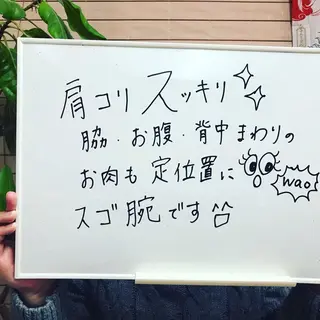 肩コリスッキリ
脇・お腹・背中まわりの
お肉も定位置に
wao
スゴ腕です